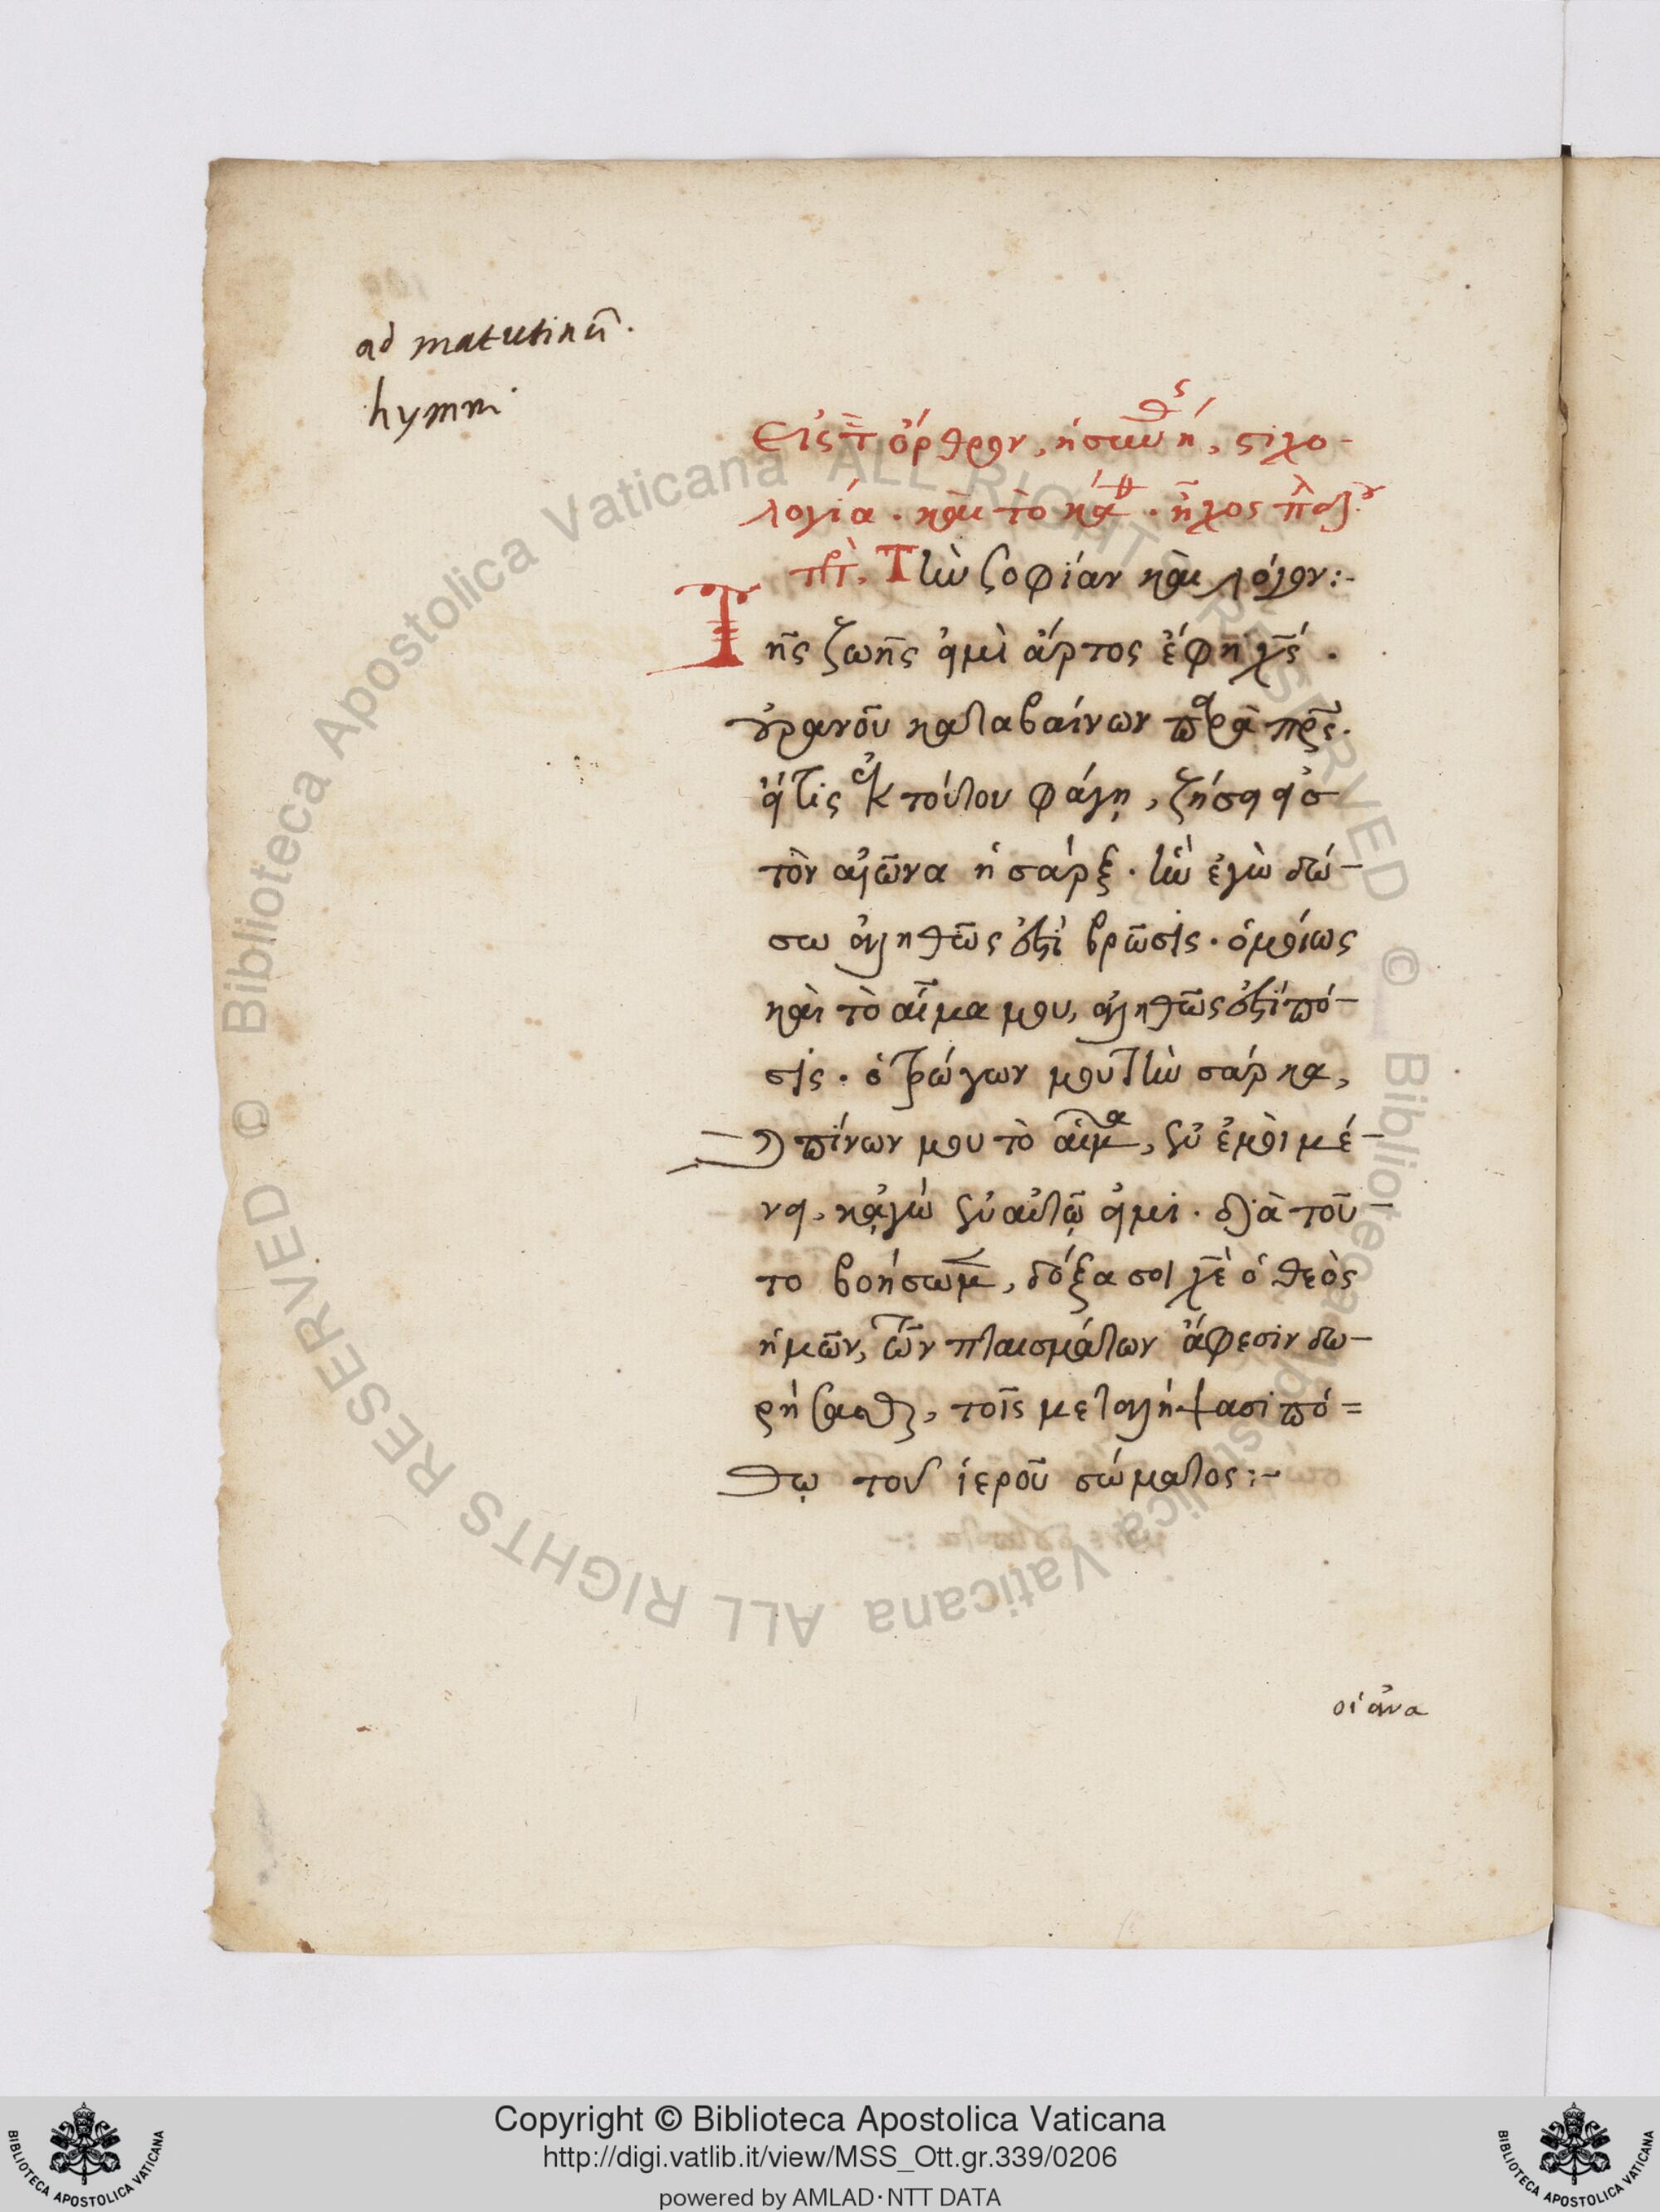 ad matutinũ.
hymni
Εἰς τ ὄρθρον, ἡ συνήθς, στιχο-
λογία. καὶ τὸ κάθ. ἦχος πλ δ.
πρ. Τὴν σοφίαν καὶ λόγον:-
Τῆς ζωῆς εἰμὶ ἄρτος ἔφη χς.
οὐρανοῦ καταβαίνων παρὰ πρς.
εἴτις ἐκ τούτου φάγη, ζήσει εἰσ
τὸν αἰῶνα ἡ σάρξ. ἣν ἐγὼ δώ-
σω ἀληθῶς ἐστὶ βρῶσις. ὁμοίως
καὶ τὸ αἷμα μου, ἀληθῶς ἐστὶ πό-
σις. ὁ τρώγων μου τὴν σάρκα,
καὶ πίνων μου τὸ αἷμα, ἐν ἐμοὶ μέ-
νει, κᾀγὼ ἐν αὐτῷ εἰμι. διὰ τοῦ-
το βοήσωμεν, δόξα σοι χε ὁ θεὸς
ἡμῶν, τῶν πταισμάτων ἄφεσιν δω-
ρήσασθαι, τοῖς μεταλήψασι πό=
θῳ τοῦ ἱεροῦ σώματος:-
οἱ ἀνα
Copyright © Biblioteca Apostolica Vaticana
http://digi.vatlib.it/view/MSS_Ott.gr.339/0206
powered by AMLAD·NTT DATA
BIBLIOTECA APOSTOLICA VATICANA
BIBLIOTECA APOSTOLICA VATICANA
© Biblioteca Apostolica Vaticana ALL RIGHTS RESERVED © Biblioteca Apostolica Vaticana ALL RIGHTS RESERVED